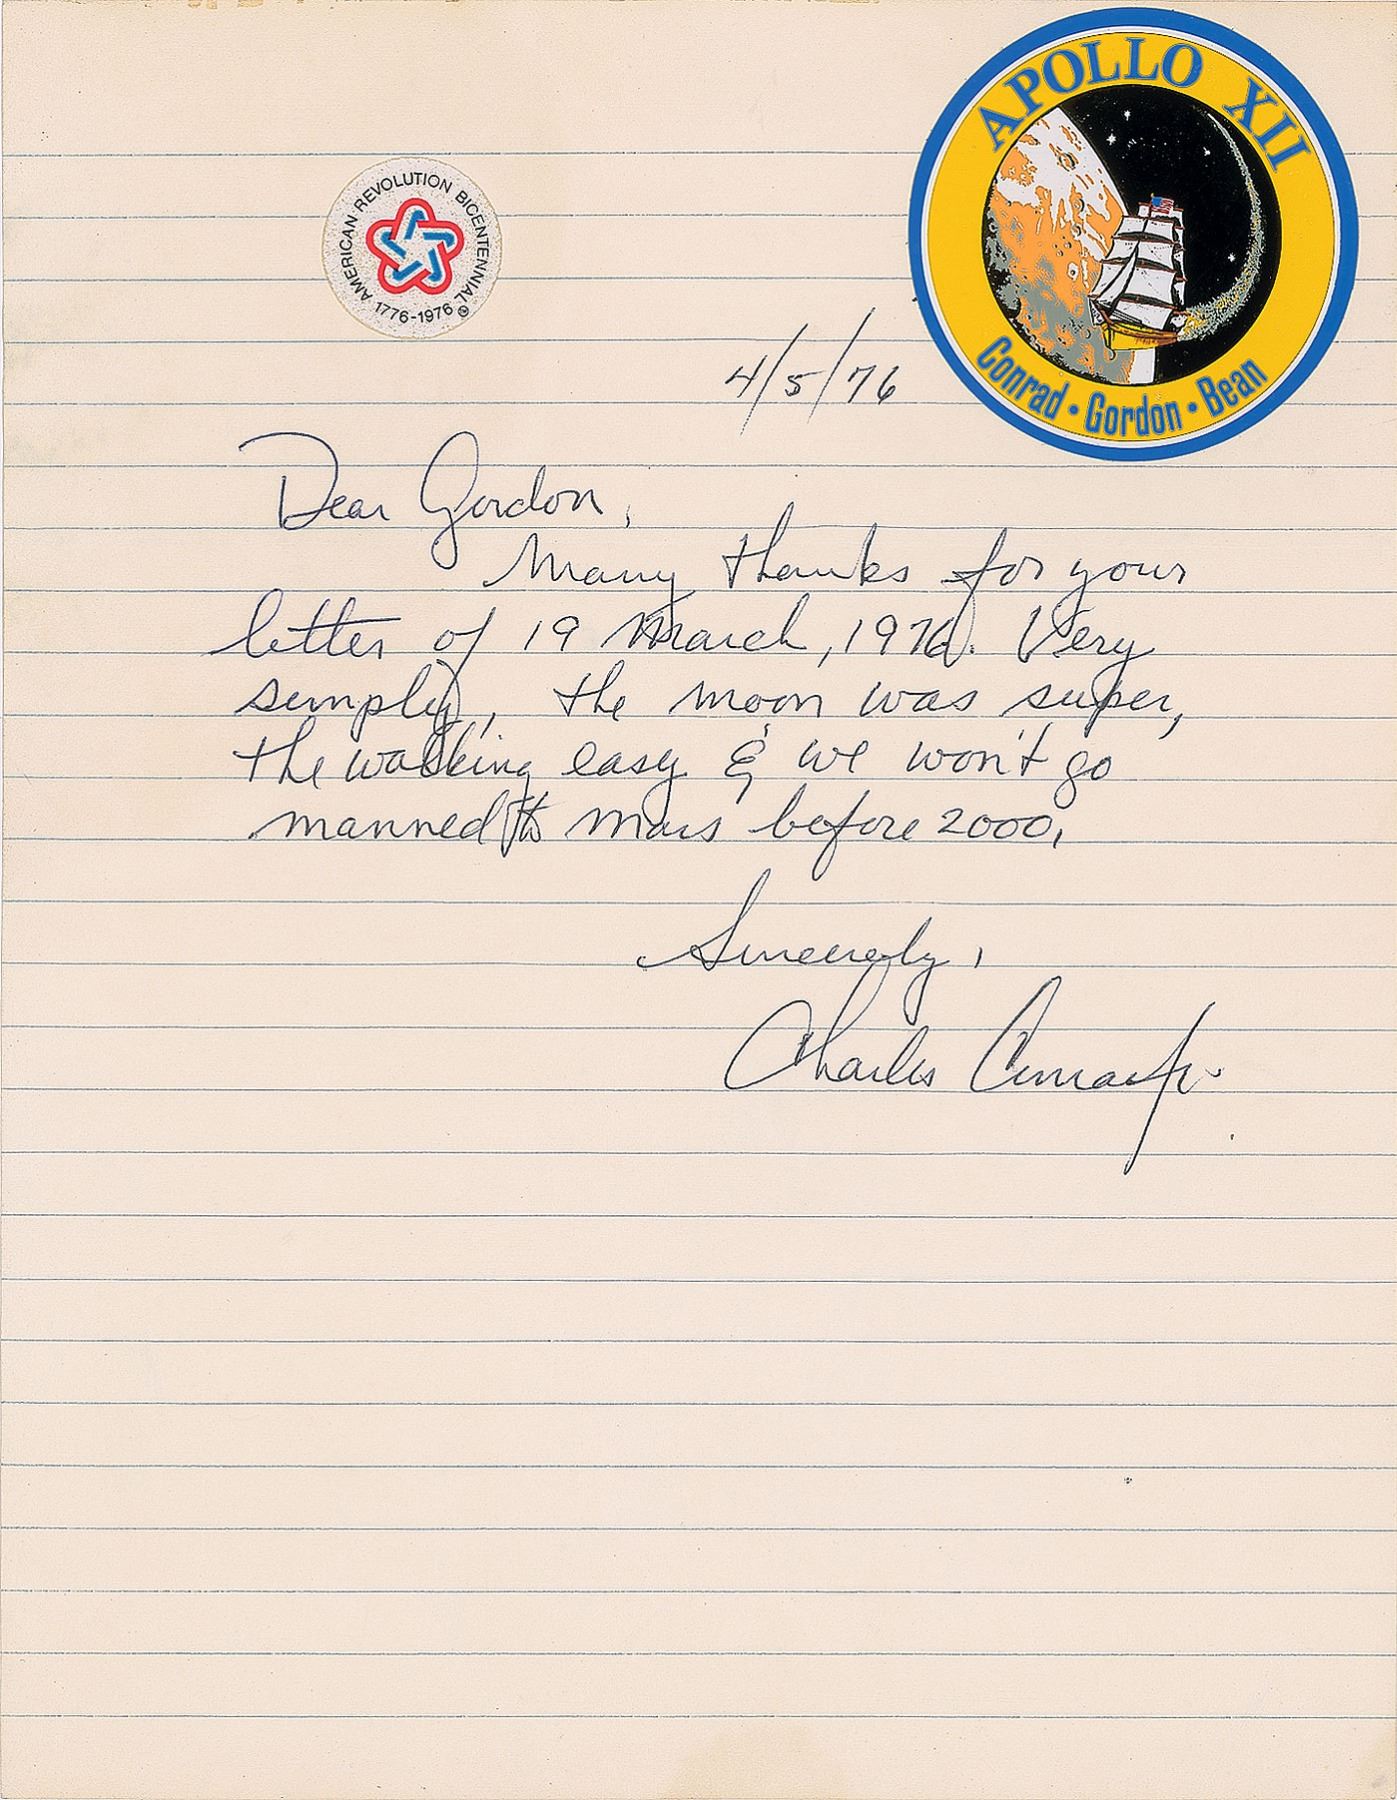 APOLLO XII
Conrad • Gordon • Bean
AMERICAN REVOLUTION BICENTENNIAL®
1776-1976
4/5/76
Dear Gordon,
Many thanks for your
letter of 19 March, 1976. Very
simply, the moon was super,
the walking easy & we won't go
manned to Mars before 2000.
Sincerely,
Charles Conrad Jr.